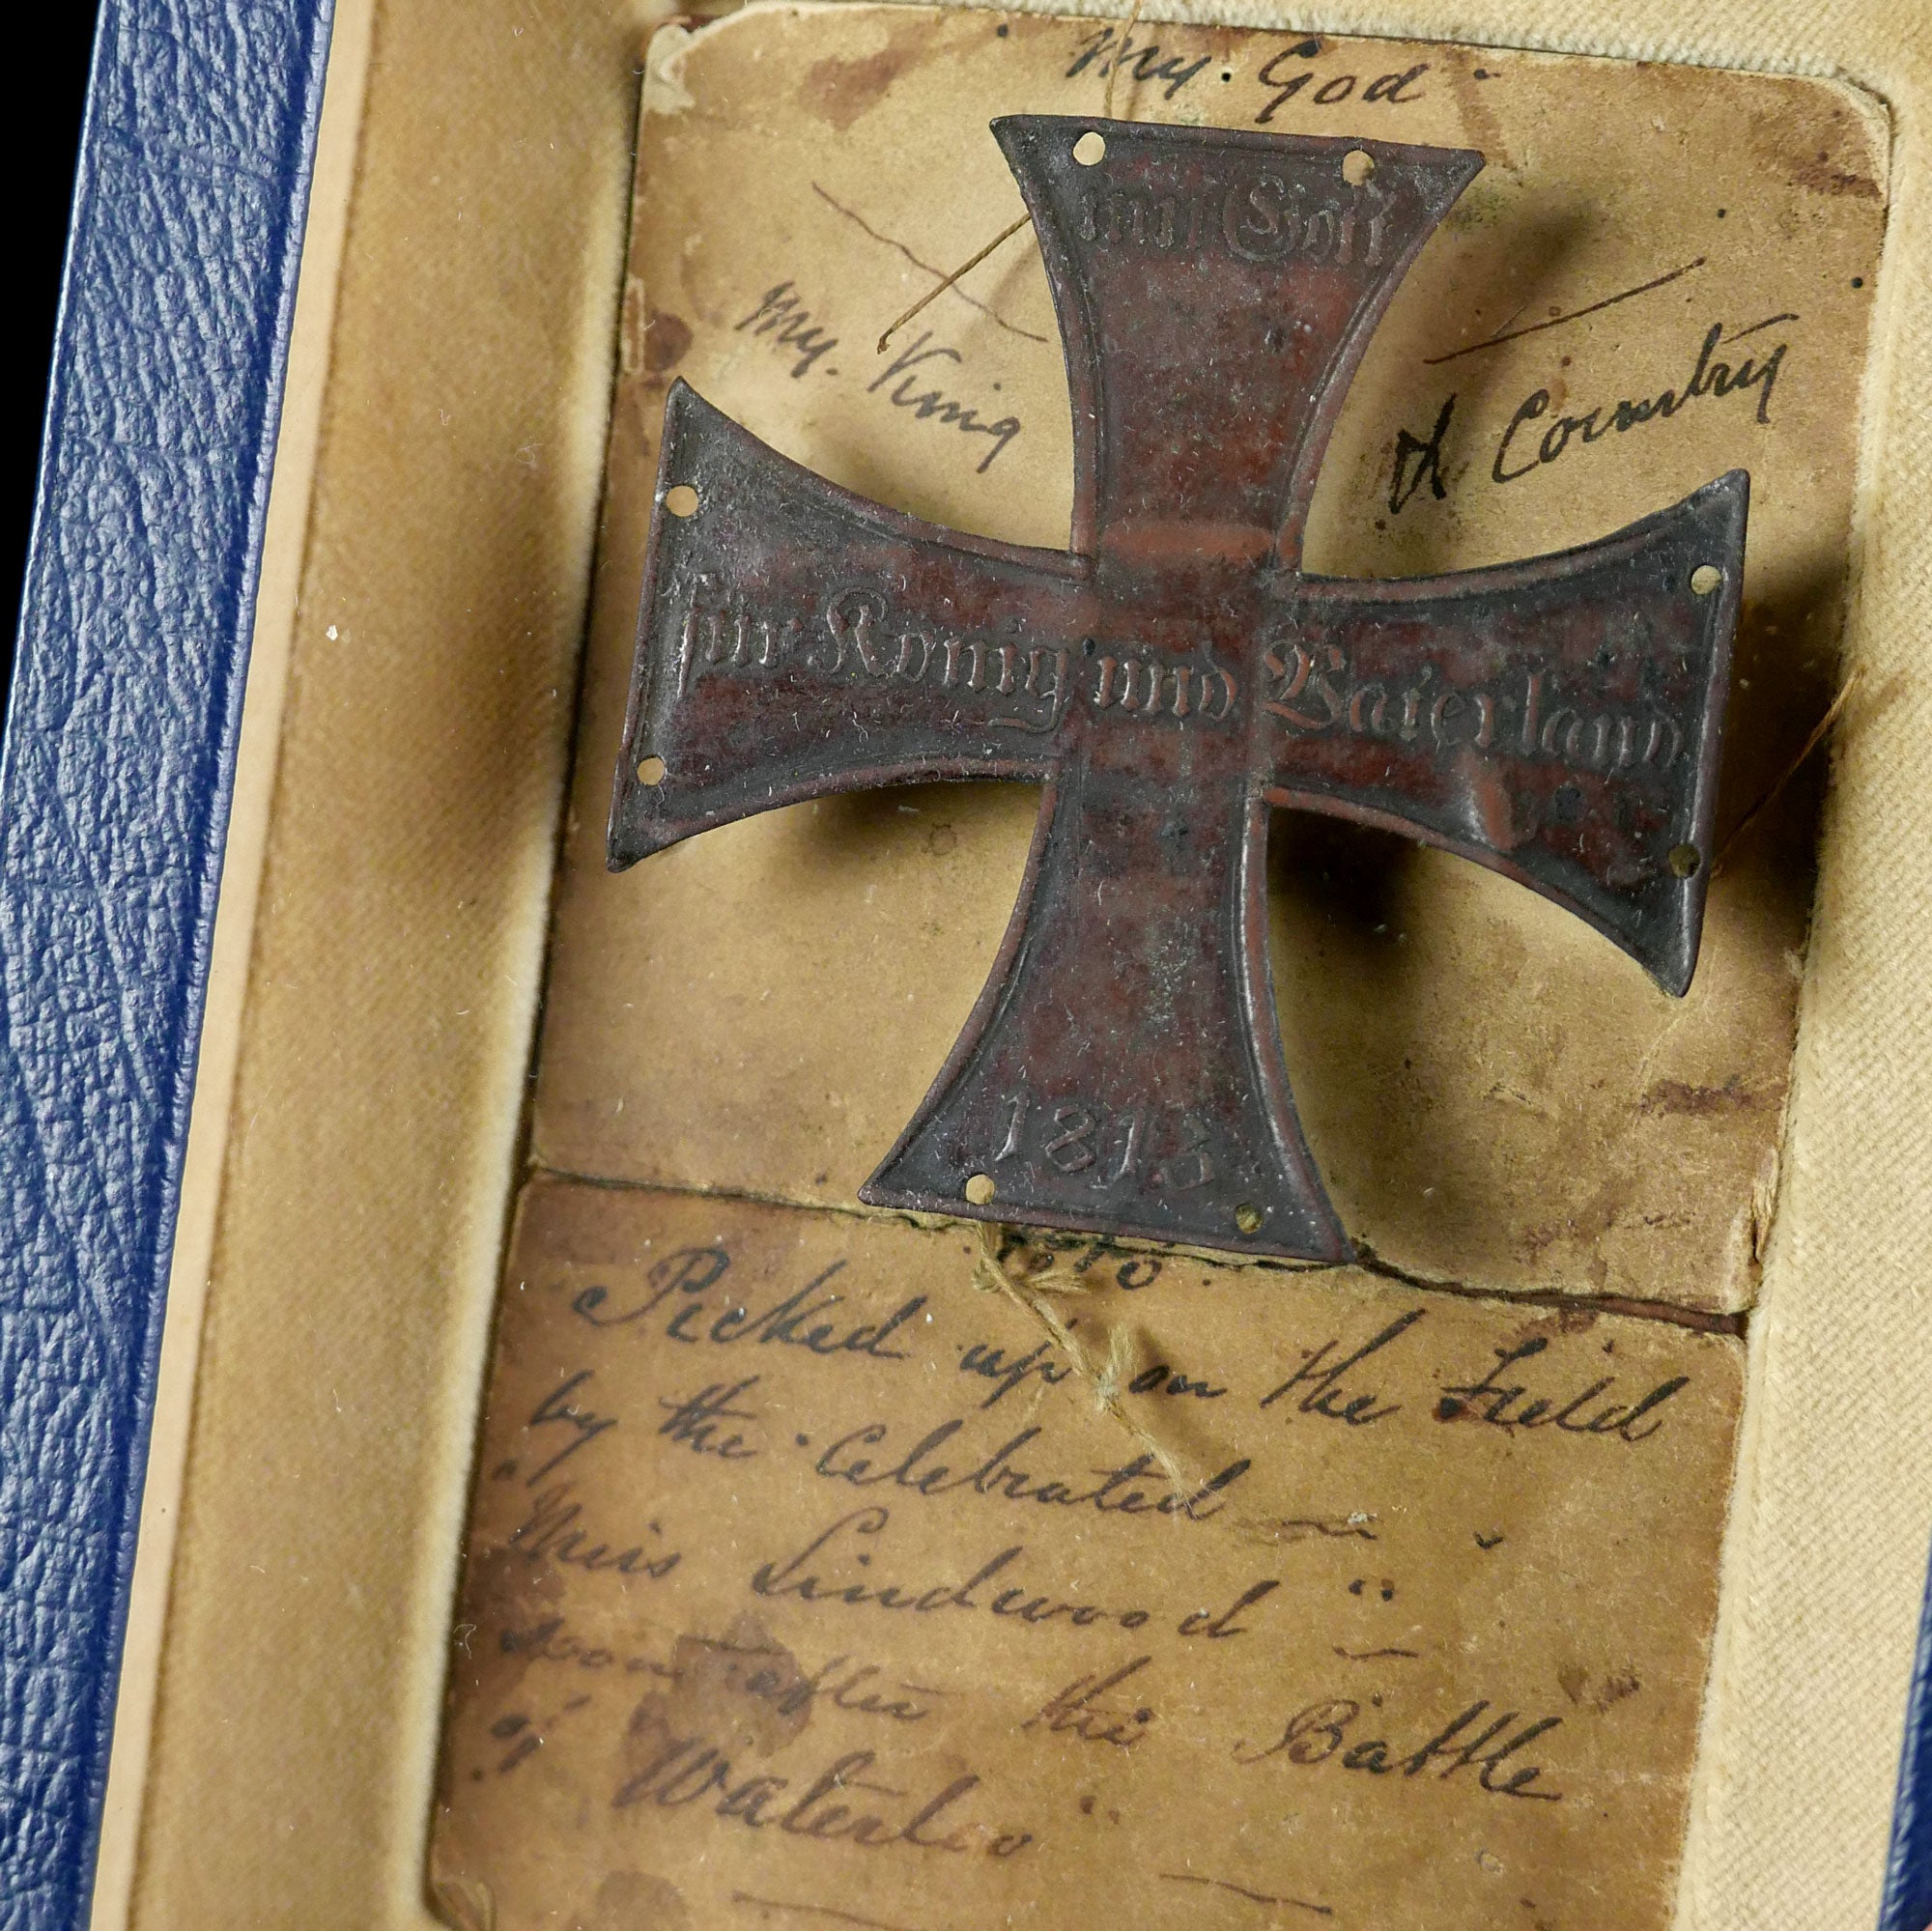 My. God
mit Gott
My. King
& Country
für König und Vaterland
1813
Picked up on the Field
by the Celebrated
Miss Lindwood
soon after the Battle
of Waterloo